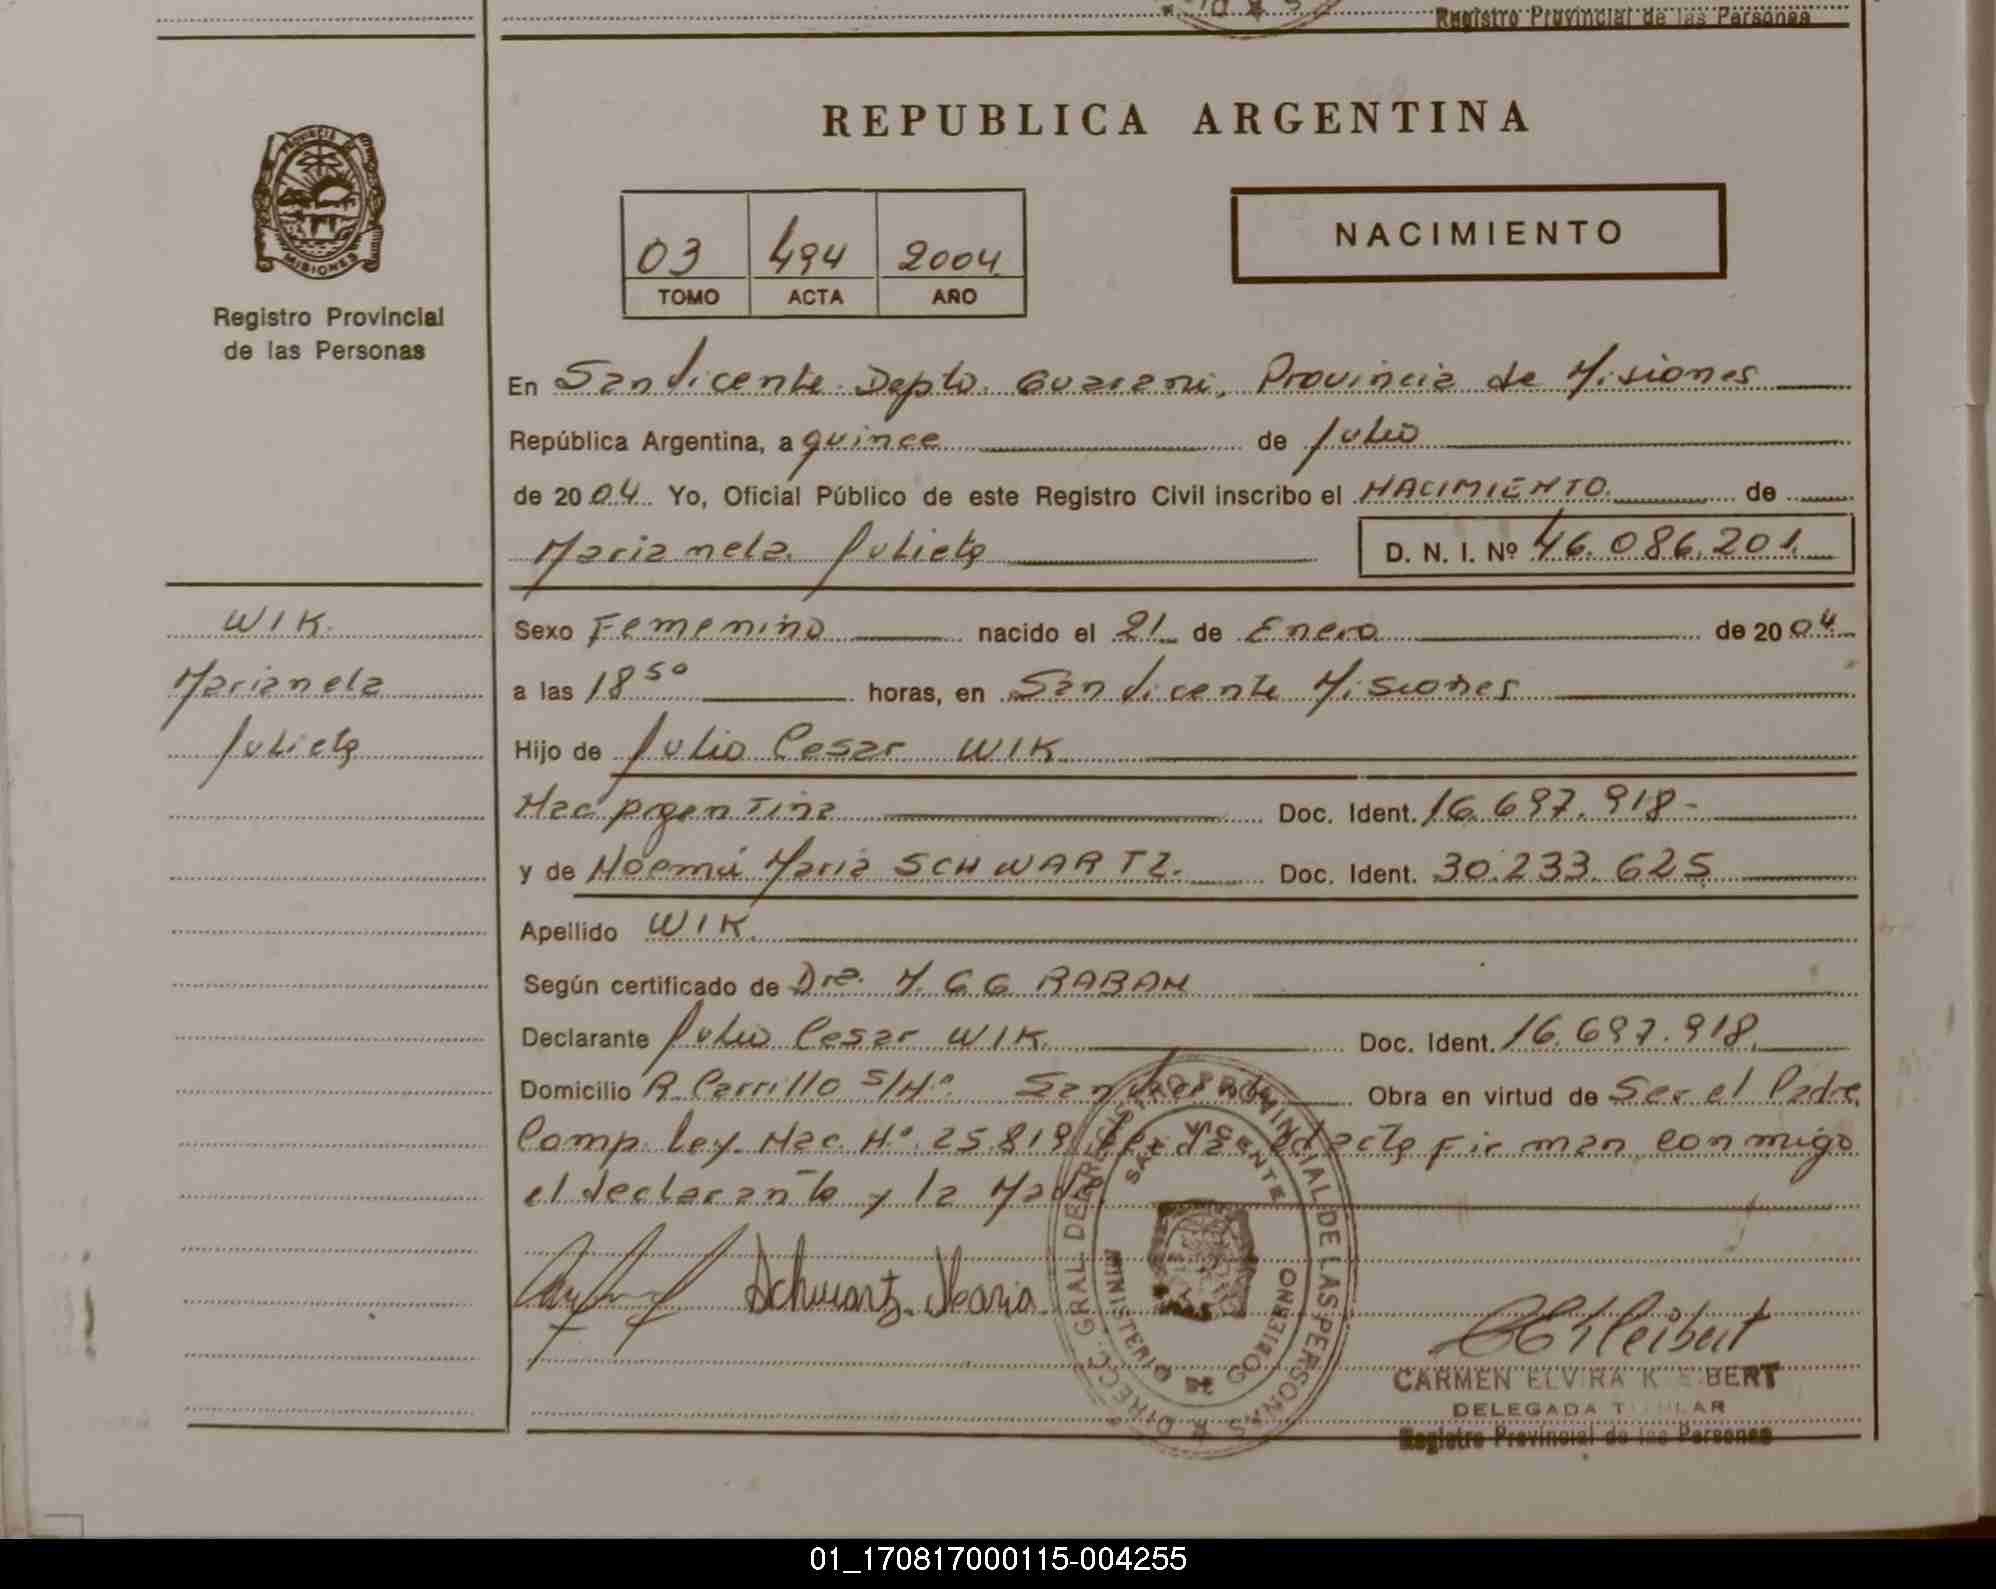 Registro Provincial de las Personas
REPUBLICA ARGENTINA
PROVINCIA DE
MISIONES
Registro Provincial
de las Personas
03 494 2004
TOMO ACTA AÑO
NACIMIENTO
En San Vicente Depto. Guarani, Provincia de Misiones
República Argentina, a quince de Julio
de 2004 Yo, Oficial Público de este Registro Civil inscribo el NACIMIENTO de
Marianela Julieta D. N. I. Nº 46.086.201
WIK
Marianela
Julieta
Sexo Femenino nacido el 21 de Enero de 2004
a las 18 50 horas, en San Vicente Misiones
Hijo de Julio Cesar WIK
Nac Argentina Doc. Ident. 16.697.918-
y de Noemí Maria SCHWARTZ. Doc. Ident. 30.233.625
Apellido WIK
Según certificado de Dra. M. G G RABAN
Declarante Julio Cesar WIK Doc. Ident. 16.697.918
Domicilio R. Carrillo S/Nº San Vicente Obra en virtud de Ser el Padre
Comp. Ley. Nac. Nº 25.819 Leida el acta Firman conmigo
el declarante y la Madre
Schwartz. Maria
DIRECC. GRAL. DEL REGISTRO PROVINCIAL DE LAS PERSONAS
SAN VICENTE
MINISTERIO DE GOBIERNO
CARMEN ELVIRA K EIBERT
DELEGADA TITULAR
Registro Provincial de las Personas
01_170817000115-004255